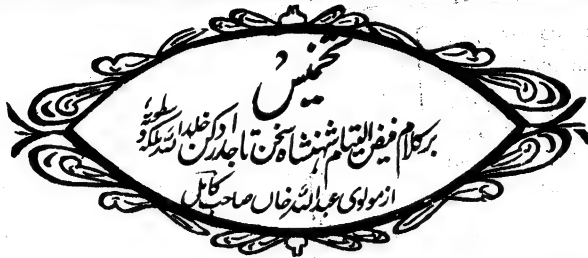 تخمیس
برکلام فیض التیام شہنشاہ سخن تاجدار دکن خلد اللہ ملکہ و سلطنتہ
از مولوی عبد اللہ خاں صاحب کامل